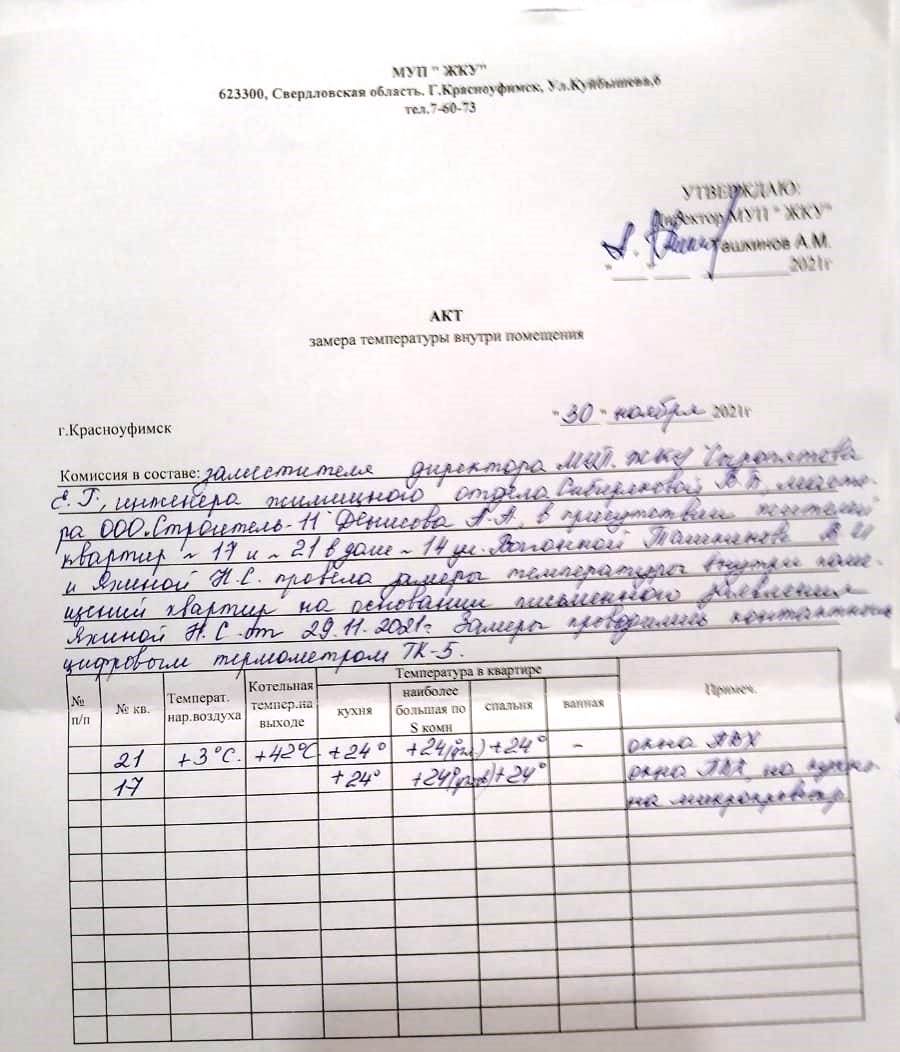 МУП " ЖКУ"
623300, Свердловская область. Г.Красноуфимск, Ул.Куйбышева,6
тел.7-60-73
УТВЕРЖДАЮ:
Директор МУП " ЖКУ"
Ташкинов А.М.
"____" ____ ________2021г
АКТ
замера температуры внутри помещения
"30" ноября 2021г
г.Красноуфимск
Комиссия в составе: заместителя директора МУП. ЖКУ
Е.Г., инженера жилищного отдела Сибиряковой В Б, масте-
ра ООО.Строитель-11 Денисова А.А, в присутствии жителей
квартир ~ 17 и ~ 21 в доме ~ 14 ул. Ташкинова В И
и Яхиной Н.С. провела замеры температуры внутри поме-
щений квартир на основании письменного заявления
Яхиной Н.С. от 29.11.2021г. Замеры проводились контактным
цифровым термометром ТК-5.
№ п/п № кв. Температ. нар.воздуха Котельная темпер.на выходе Температура в квартире Примеч.
кухня наиболее большая по S комн спальня ванная
21 +3°С. +42°С +24° +24° +24° - окна ПВХ
17 +24° +24° +24° окна ПВХ, на кухне
на микропроветр.